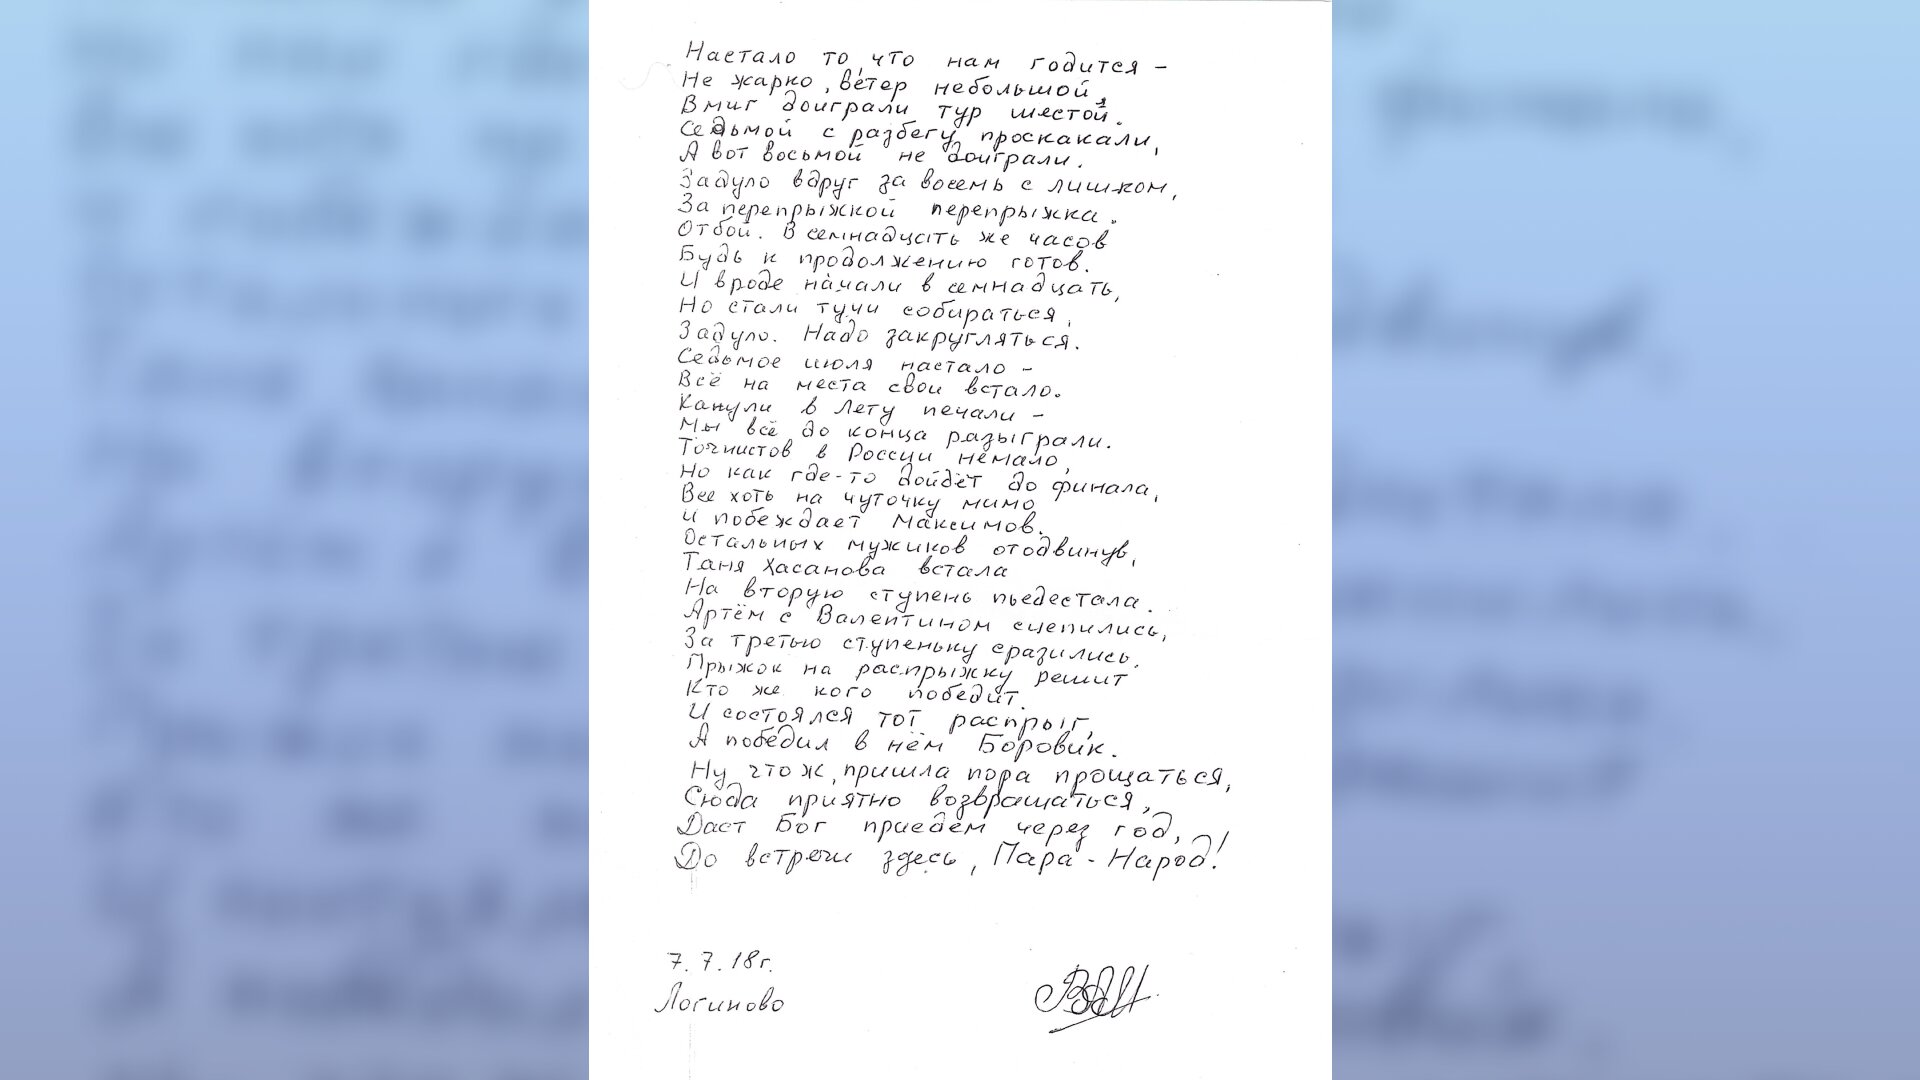 Настало то, что нам годится -
Не жарко, ветер небольшой,
Вмиг доиграли тур шестой.
Седьмой с разбегу проскакали,
А вот восьмой не доиграли.
Задуло вдруг за восемь с лишком,
За перепрыжкой перепрыжка.
Отбой. В семнадцать же часов
Будь к продолжению готов.
И вроде начали в семнадцать,
Но стали тучи собираться,
Задуло. Надо закругляться.
Седьмое июля настало -
Всё на места свои встало.
Канули в Лету печали -
Мы всё до конца разыграли.
Точнистов в России немало,
Но как где-то дойдёт до финала,
Все хоть на чуточку мимо
И побеждает Максимов.
Остальных мужиков отодвинув,
Таня Хасанова встала
На вторую ступень пьедестала.
Артём с Валентином сцепились,
За третью ступеньку сразились.
Прыжок на распрыжку решит
Кто же кого победит.
И состоялся тот распрыг,
А победил в нём Боровик.
Ну что ж, пришла пора прощаться,
Сюда приятно возвращаться,
Даст Бог приедем через год,
До встречи здесь, Пара-Народ!
7.7.18г.
Логиново